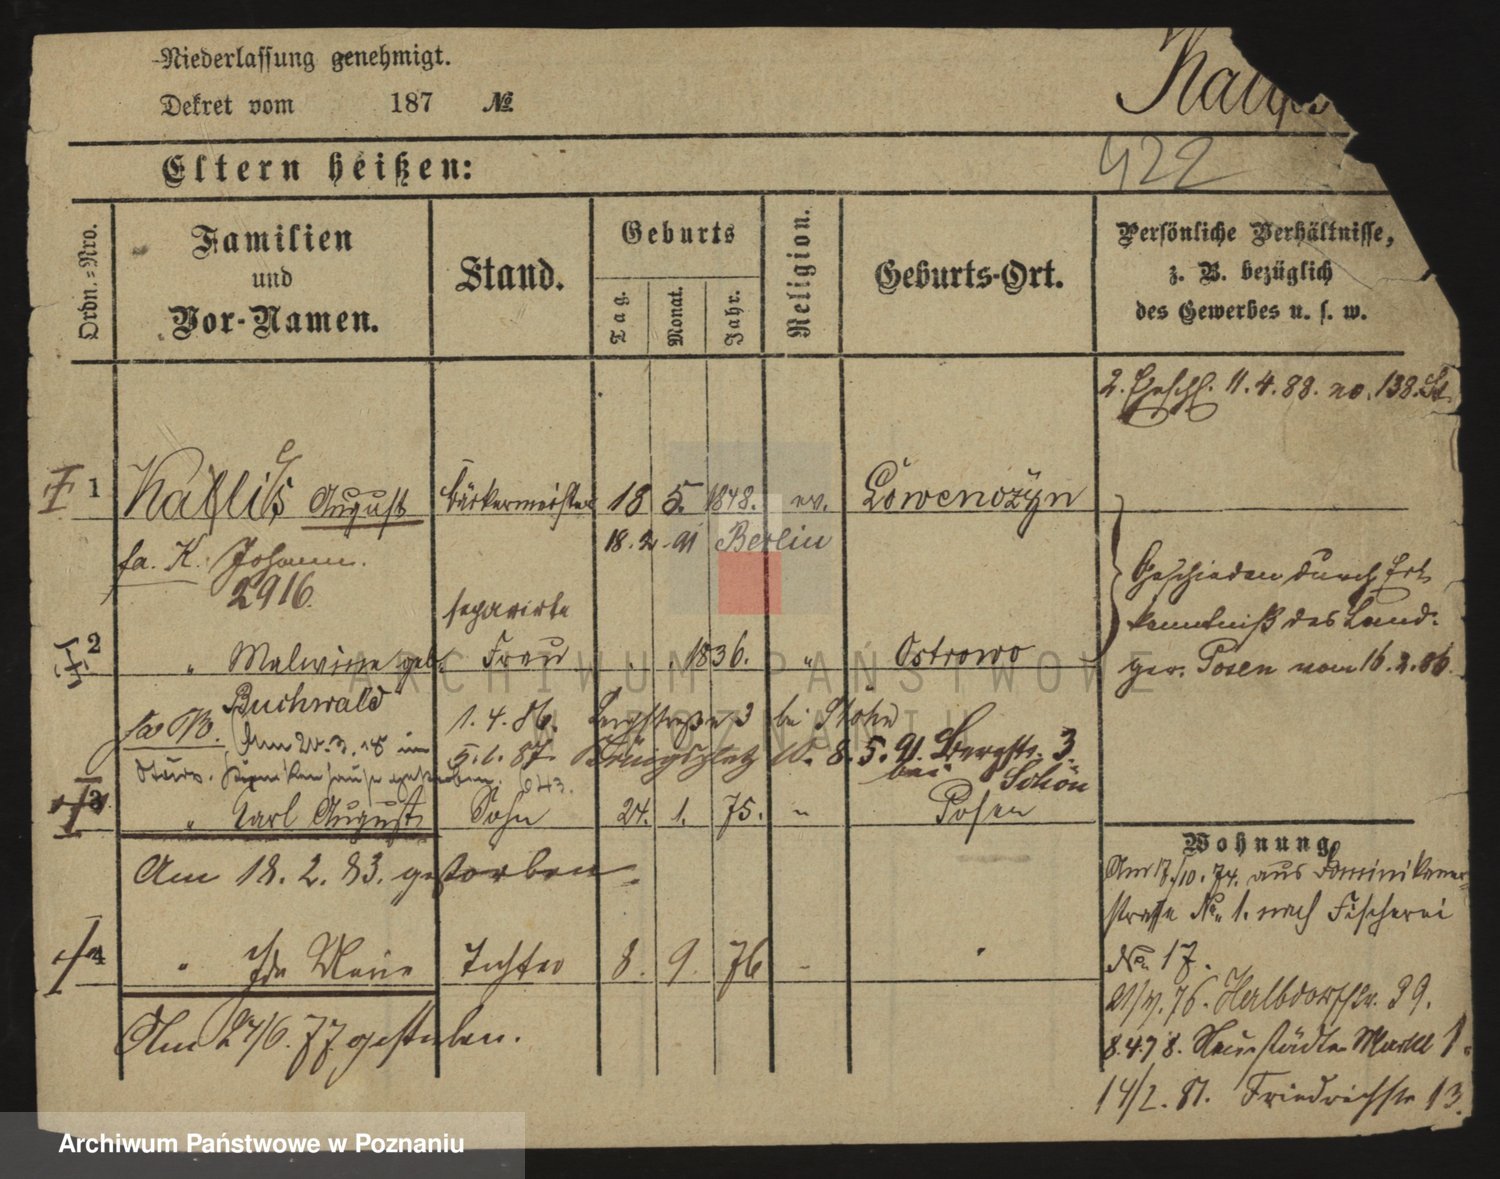 Niederlassung genehmigt.
Dekret vom 187 №
422
Eltern heißen:
Ordn.=Nro.
Familien
und
Vor-Namen.
Stand.
Geburts
Tag.
Monat.
Jahr.
Religion.
Geburts-Ort.
Persönliche Verhältnisse,
z. B. bezüglich
des Gewerbes u. s. w.
2. 11.4.88. no. 138.
I 1 August Bäckermeister 18 5. 1848. ev.
fa. K. Johann. 18.2.91 Berlin
2916.
Geschieden durch Erk
kenntniß des Land.
ger. Posen vom 16.2.86.
separirte
2 " Malwine geb. Frau " " 1836. " Ostrowo
Buchwald
1.4.86. 3 bei
5.1.87. 8.5.91. Bergstr. 3.
bei Schön
gestorben. 643.
3 " Carl August Sohn 24. 1. 75. " Posen
Am 18.2.83. gestorben.
4 " Ida Marie Tochter 8. 9. 76 "
Am 24/6. 77 gestorben.
Wohnung.
Am 17./10. 74. aus Dominikaner=
strasse No. 1. nach Fischerei
No. 17.
76. Halbdorfstr. 29.
8.4.78. Neustädter Markt 1.
14/2. 81. Friedrichstr 13.
ARCHIWUM PAŃSTWOWE
W POZNANIU
Archiwum Państwowe w Poznaniu